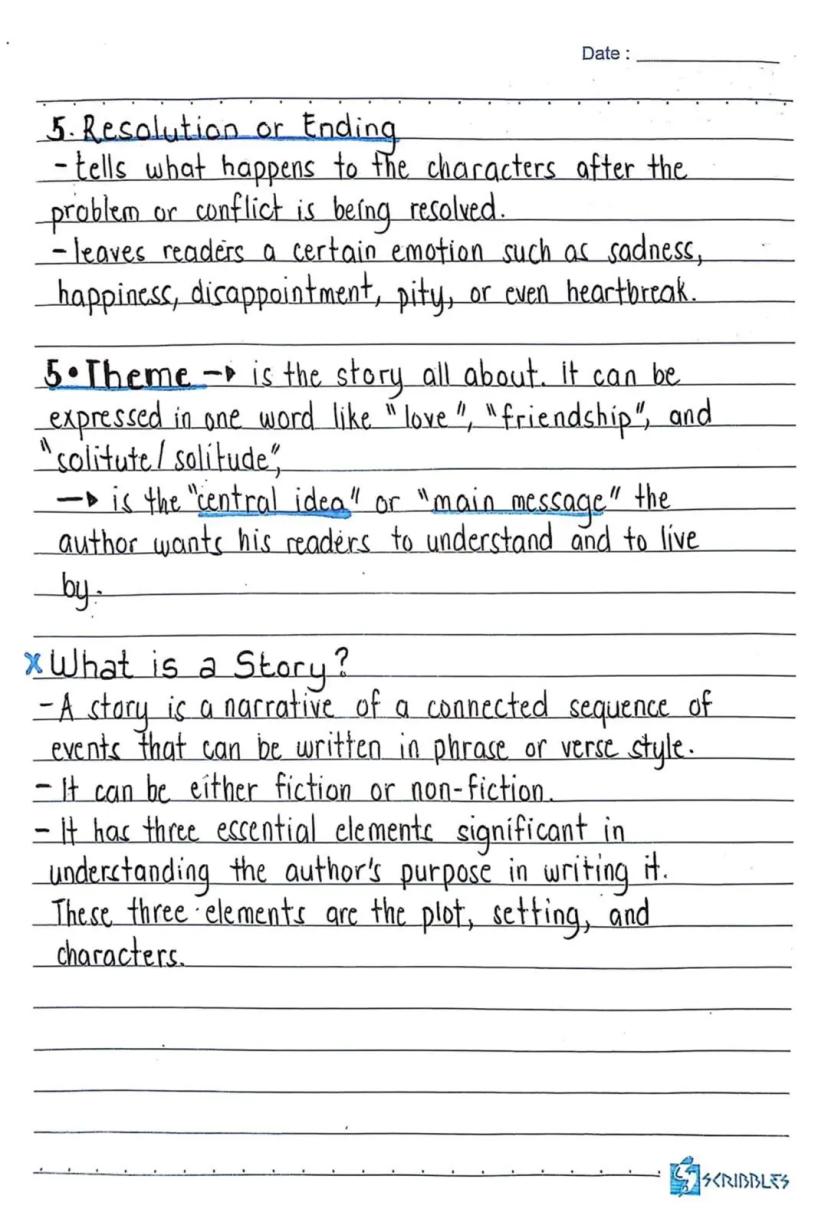 Date : ____________
5. Resolution or Ending
- tells what happens to the characters after the
problem or conflict is being resolved.
- leaves readers a certain emotion such as sadness,
happiness, disappointment, pity, or even heartbreak.
5• Theme → is the story all about. it can be
expressed in one word like "love", "friendship", and
"solitute/solitude",
→ is the "central idea" or "main message" the
author wants his readers to understand and to live
by.
x What is a Story?
- A story is a narrative of a connected sequence of
events that can be written in phrase or verse style.
- It can be either fiction or non-fiction.
- It has three essential elements significant in
understanding the author's purpose in writing it.
These three elements are the plot, setting, and
characters.
SCRIBBLES